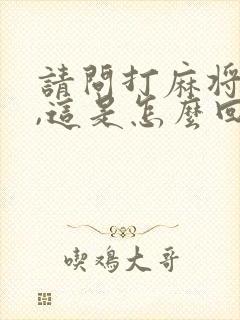 請問打麻將
,這是怎麼回
喫鳮大哥